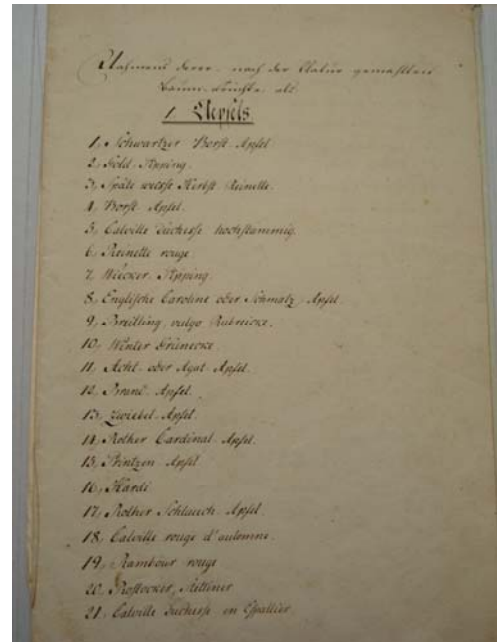 Nahmens derer, nach der Natur gemahlten
Baum-Früchte, als
1. Aepfels.
1, Schwartzer Borst-Apfel
2, Gold-Pipping.
3, Späte weisse Herbst-Reinette.
4, Borst-Apfel.
5, Calville Duchesse hochstammig.
6, Reinette rouge
7, Pipping
8, Englische Caroline oder Schmaltz-Apfel.
9, Breitling, vulgo
10, Winter
11, oder Agat-Apfel.
12, Apfel.
13, Zwiebel-Apfel.
14, Rother Cardinal-Apfel.
15, Printzen-Apfel
16, Hardi
17, Rother Schlauch-Apfel.
18, Calville rouge d'automne.
19, Rambour rouge
20, Rostocker, Stettiner
21, Calville Duchesse en Espallier.